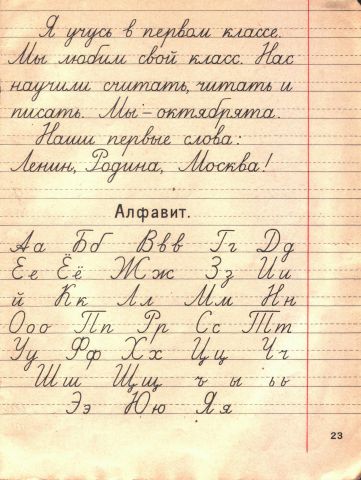 Я учусь в первом классе.
Мы любим свой класс. Нас
научили считать, читать и
писать. Мы – октябрята.
Наши первые слова:
Ленин, Родина, Москва!
Алфавит.
Аа Бб Ввв Гг Дд
Ее Ёё Жж Зз Ии
й Кк Лл Мм Нн
Ооо Пп Рр Сс Тт
Уу Фф Хх Цц Чч
Шш Щщ ъ ы ьь
Ээ Юю Яя
23